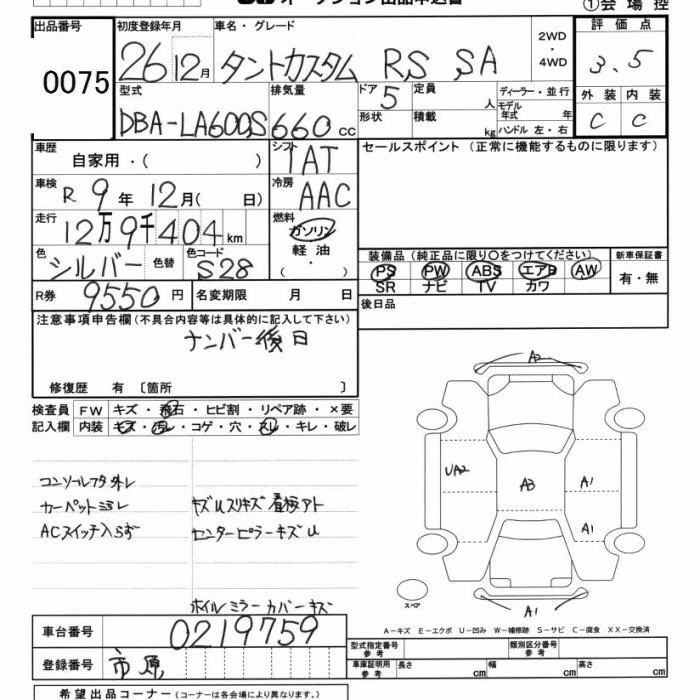 オークション出品申込書
①会場控
出品番号 初度登録年月 車名・グレード 評価点
0075 26 12月 タントカスタム RS SA 2WD・4WD 3.5
型式 排気量 ドア 定員 ディーラー・並行 外装 内装
DBA-LA600S 660cc 5 人 モデル年式 年 C C
形状 積載 kg ハンドル 左・右
車歴 自家用・( ) シフト IAT
セールスポイント (正常に機能するものに限ります)
車検 R 9年 12月( 日) 冷房 AAC
走行 12万9千404km 燃料 ガソリン 軽油 ( ・ )
色 シルバー 色替 色コード S28
装備品 (純正品に限り〇をつけてください) 新車保証書
PS PW ABS エアB AW 有・無
SR ナビ TV カワ
R券 9550円 名変期限 月 日
後日品
注意事項申告欄 (不具合内容等は具体的に記入して下さい)
ナンバー後日
修復歴 有 〔箇所 〕
検査員 FW キズ・飛石・ヒビ割・リペア跡・×要
記入欄 内装 キズ・汚レ・コゲ・穴・スレ・キレ・破レ
コンソールフタ外レ
カーペットヨゴレ キズUスリキズ 看板アト
ACスイッチ入らず センターピラーキズU
ホイルミラーカバーキズ
A2
UA2
A3
A1
A1
A1
スペア
A−キズ E−エクボ U−凹み W−補修跡 S−サビ C−腐食 XX−交換済
車台番号 0219759
登録番号 市原
型式指定番号 参考 類別区分番号 参考
車庫証明用 参考 長さ cm 幅 cm 高さ cm
希望出品コーナー (コーナーは各会場により異なります。)